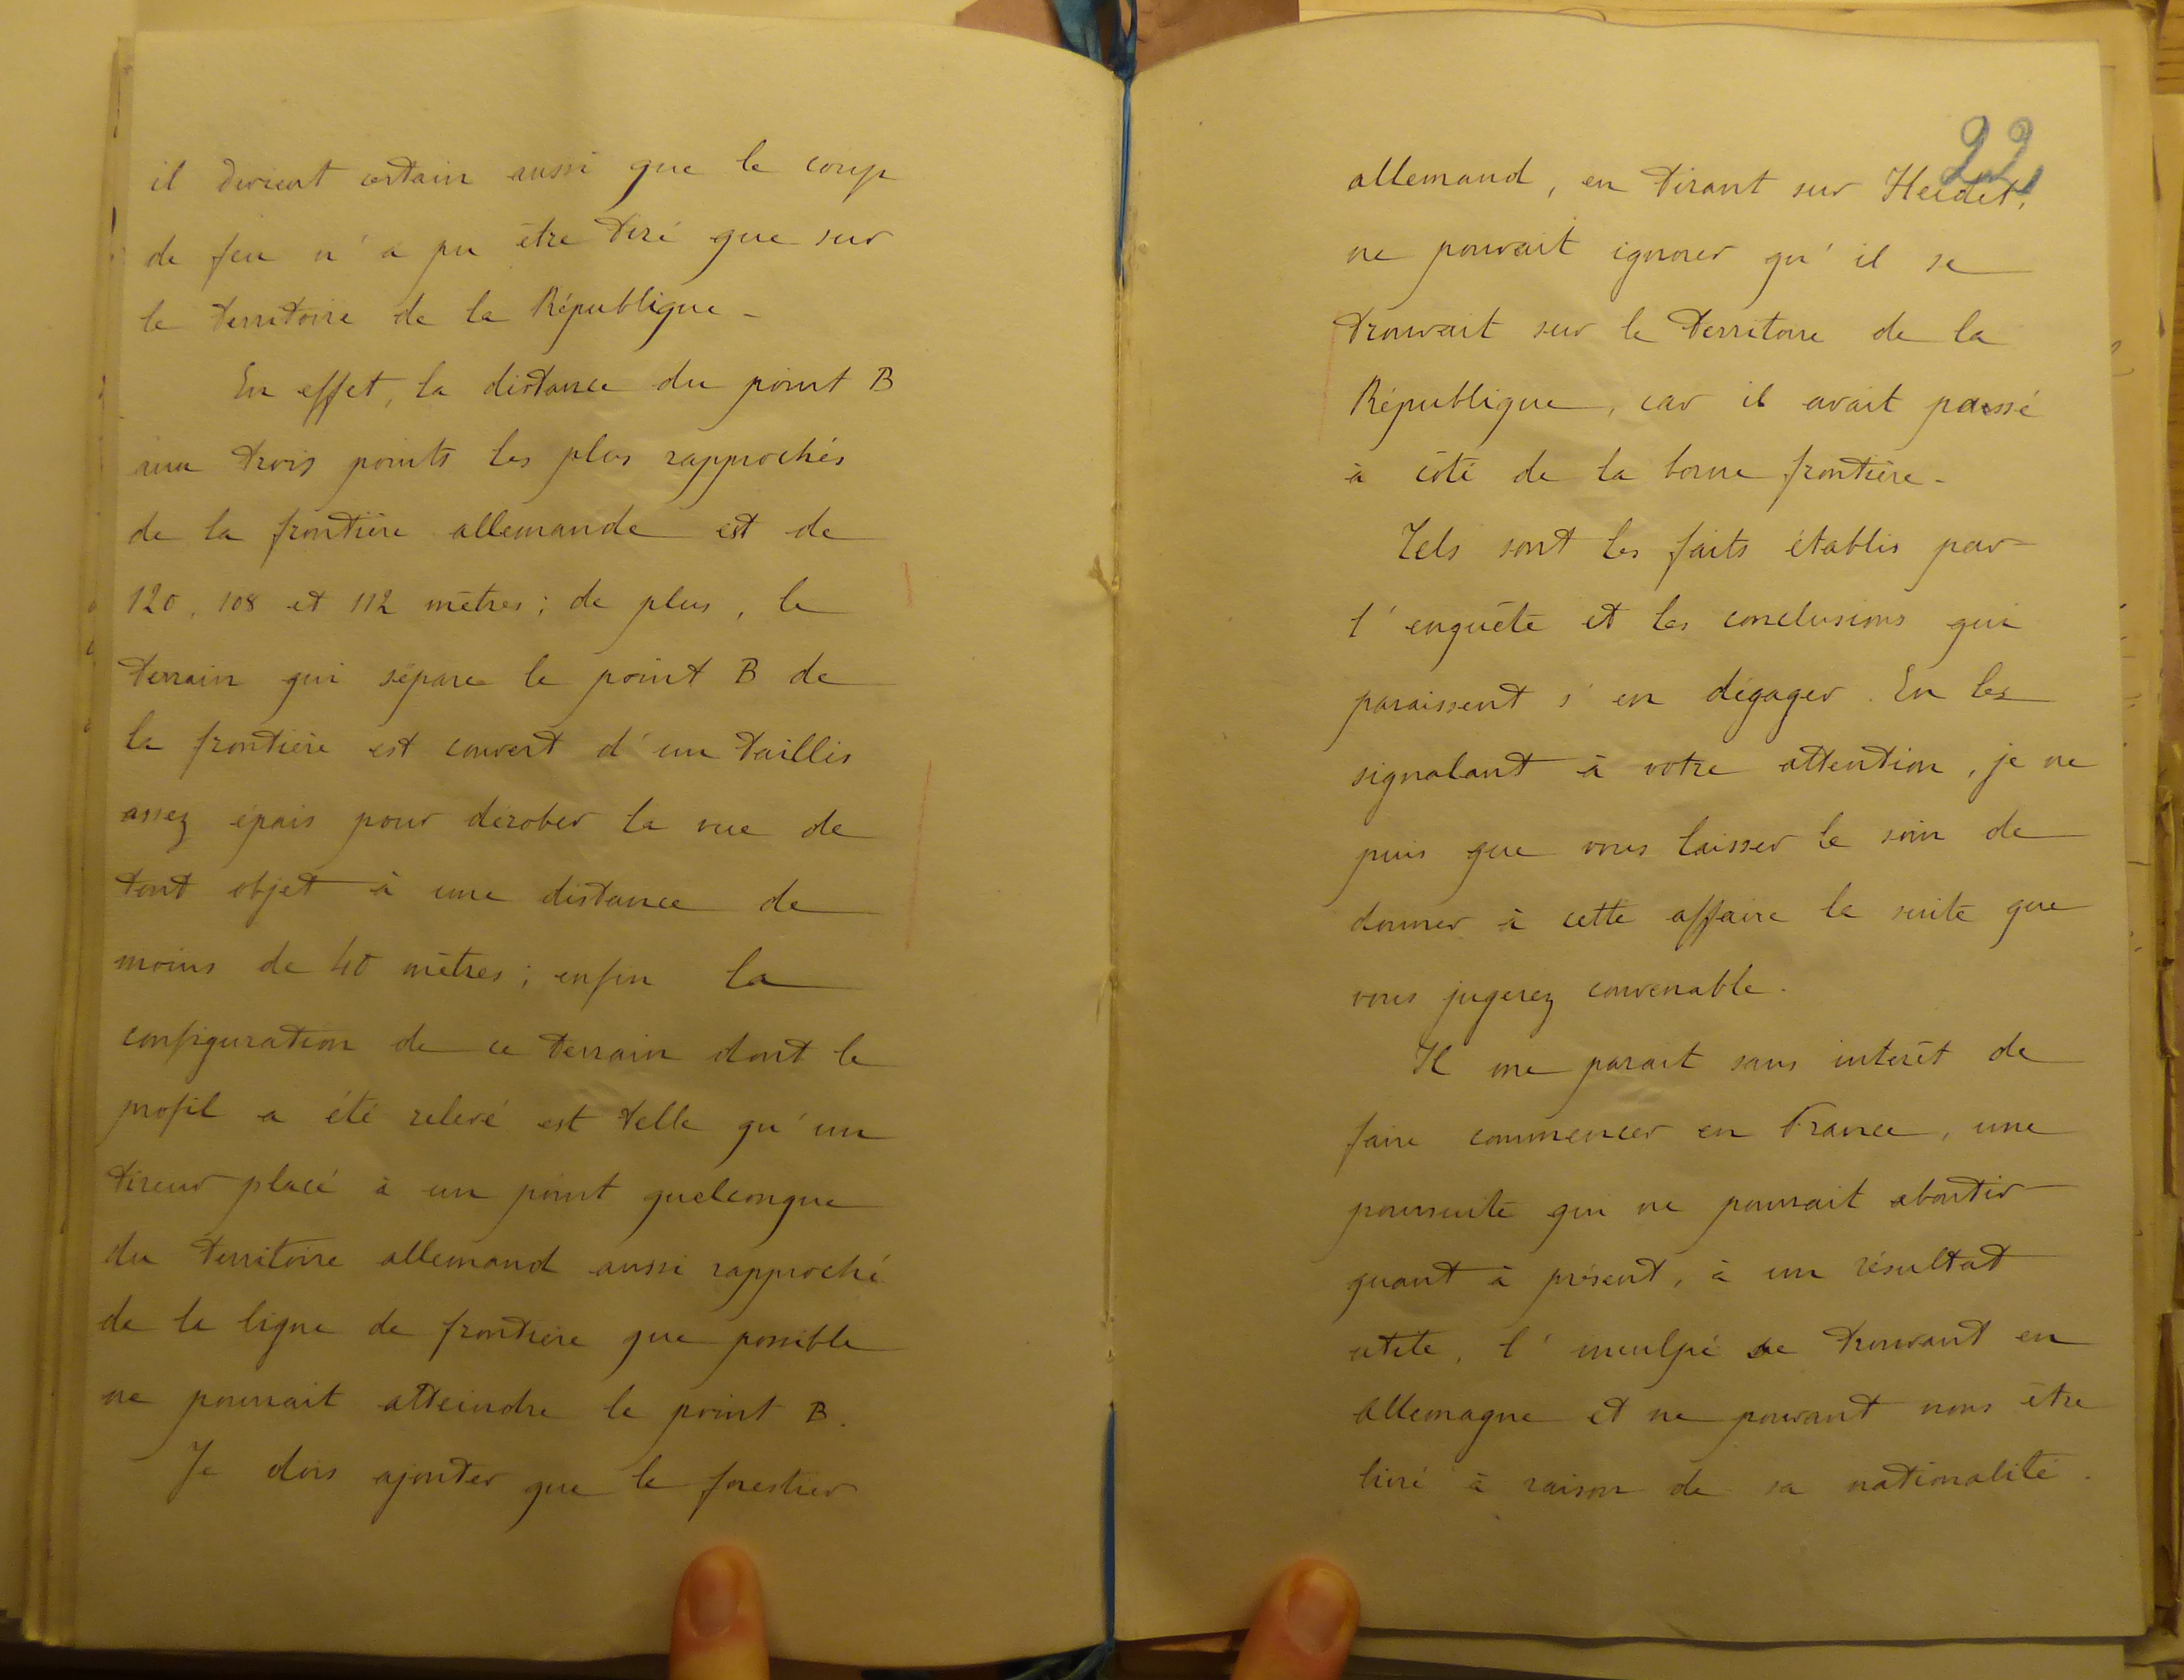 il devient certain aussi que le coup
de feu n'a pu être tiré que sur
le territoire de la République -
En effet, la distance du point B
aux trois points les plus rapprochés
de la frontière allemande est de
120, 108 et 112 mètres ; de plus, le
terrain qui sépare le point B de
la frontière est couvert d'un taillis
assez épais pour dérober la vue de
tout objet à une distance de
moins de 40 mètres ; enfin la
configuration de ce terrain dont le
profil a été relevé est telle qu'un
tireur placé à un point quelconque
du territoire allemand aussi rapproché
de la ligne de frontière que possible
ne pourrait atteindre le point B.
Je dois ajouter que le forestier
22
allemand, en tirant sur Heidet,
ne pouvait ignorer qu'il se
trouvait sur le territoire de la
République, car il avait passé
à côté de la borne frontière -
Tels sont les faits établis par
l'enquête et les conclusions qui
paraissent s'en dégager. En les
signalant à votre attention, je ne
puis que vous laisser le soin de
donner à cette affaire la suite que
vous jugerez convenable.
Il me parait sans interêt de
faire commencer en France, une
poursuite qui ne pourrait aboutir
quant à présent, à un résultat
utile, l'inculpé se trouvant en
Allemagne et ne pouvant nous être
livré à raison de sa nationalité.